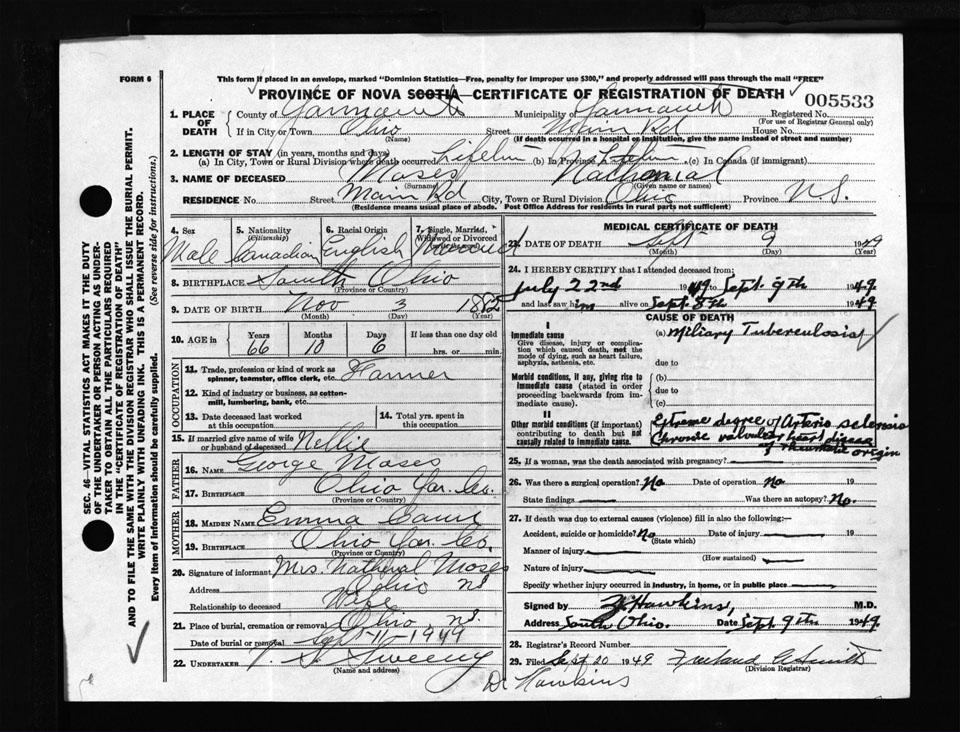 FORM 6
This form if placed in an envelope, marked "Dominion Statistics—Free, penalty for improper use $300," and properly addressed will pass through the mail "FREE"
PROVINCE OF NOVA SCOTIA—CERTIFICATE OF REGISTRATION OF DEATH
005533
1. PLACE OF DEATH
County of Yarmouth Municipality of Yarmouth Registered No.
(For use of Registrar General only)
If in City or Town Ohio Street Main Rd House No.
(Name) (If death occurred in a hospital or institution, give name instead of street and number)
2. LENGTH OF STAY (in years, months and days)
(a) In City, Town or Rural Division where death occurred Lifetime (b) In Province Lifetime (c) In Canada (if immigrant)
3. NAME OF DECEASED Moses Nathanial
(Surname) (Given name or names)
RESIDENCE No Street Main Rd City, Town or Rural Division Ohio Province N.S.
(Residence means usual place of abode. Post Office Address for residents in rural parts not sufficient)
4. Sex Male
5. Nationality (Citizenship) Canadian
6. Racial Origin English
7. Single, Married, Widowed or Divorced Married
8. BIRTHPLACE South Ohio
(Province or Country)
9. DATE OF BIRTH Nov 3 1882
(Month) (Day) (Year)
10. AGE in Years 66 Months 10 Days 6 If less than one day old hrs. or min.
OCCUPATION
11. Trade, profession or kind of work as spinner, teamster, office clerk, etc. Farmer
12. Kind of industry or business, as cotton-mill, lumbering, bank, etc.
13. Date deceased last worked at this occupation
14. Total yrs. spent in this occupation
15. If married give name of wife or husband of deceased Nellie
FATHER
16. NAME George Moses
17. BIRTHPLACE Ohio Yar. Co.
(Province or Country)
MOTHER
18. MAIDEN NAME Emma
19. BIRTHPLACE Ohio Yar. Co.
(Province or Country)
20. Signature of informant Mrs. Nathanial Moses
Address Ohio NS
Relationship to deceased Wife
21. Place of burial, cremation or removal Ohio, NS.
Date of burial or removal Sept 11 1949
22. UNDERTAKER V. S. Sweeny
(Name and address)
MEDICAL CERTIFICATE OF DEATH
23. DATE OF DEATH Sept 9 1949
(Month) (Day) (Year)
24. I HEREBY CERTIFY that I attended deceased from:
July 22nd 1949 to Sept. 9th 1949
and last saw him alive on Sept. 8th 1949
CAUSE OF DEATH
I
Immediate cause
Give disease, injury or complication which caused death, not the mode of dying, such as heart failure, asphyxia, asthenia, etc.
(a) Miliary Tuberculosis
due to
Morbid conditions, if any, giving rise to immediate cause (stated in order proceeding backwards from immediate cause).
(b)
due to
(c)
II
Other morbid conditions (if important) contributing to death but not causally related to immediate cause.
Extreme degree of Arterio sclerosis
Chronic valvular heart disease
of rheumatic origin
25. If a woman, was the death associated with pregnancy?
26. Was there a surgical operation? No Date of operation No 19
State findings Was there an autopsy? No.
27. If death was due to external causes (violence) fill in also the following:
Accident, suicide or homicide? No Date of injury 19
(State which)
Manner of injury
(How sustained)
Nature of injury
Specify whether injury occurred in industry, in home, or in public place
Signed by Hawkins, M.D.
Address South Ohio. Date Sept 9th 1949
28. Registrar's Record Number
29. Filed Sept 20 1949 Smith
(Division Registrar)
Dr Hawkins
SEC. 46—VITAL STATISTICS ACT MAKES IT THE DUTY
OF THE UNDERTAKER OR PERSON ACTING AS UNDER-
TAKER TO OBTAIN ALL THE PARTICULARS REQUIRED
IN THE "CERTIFICATE OF REGISTRATION OF DEATH"
AND TO FILE THE SAME WITH THE DIVISION REGISTRAR WHO SHALL ISSUE THE BURIAL PERMIT.
WRITE PLAINLY WITH UNFADING INK. THIS IS A PERMANENT RECORD.
Every item of information should be carefully supplied. (See reverse side for instructions.)